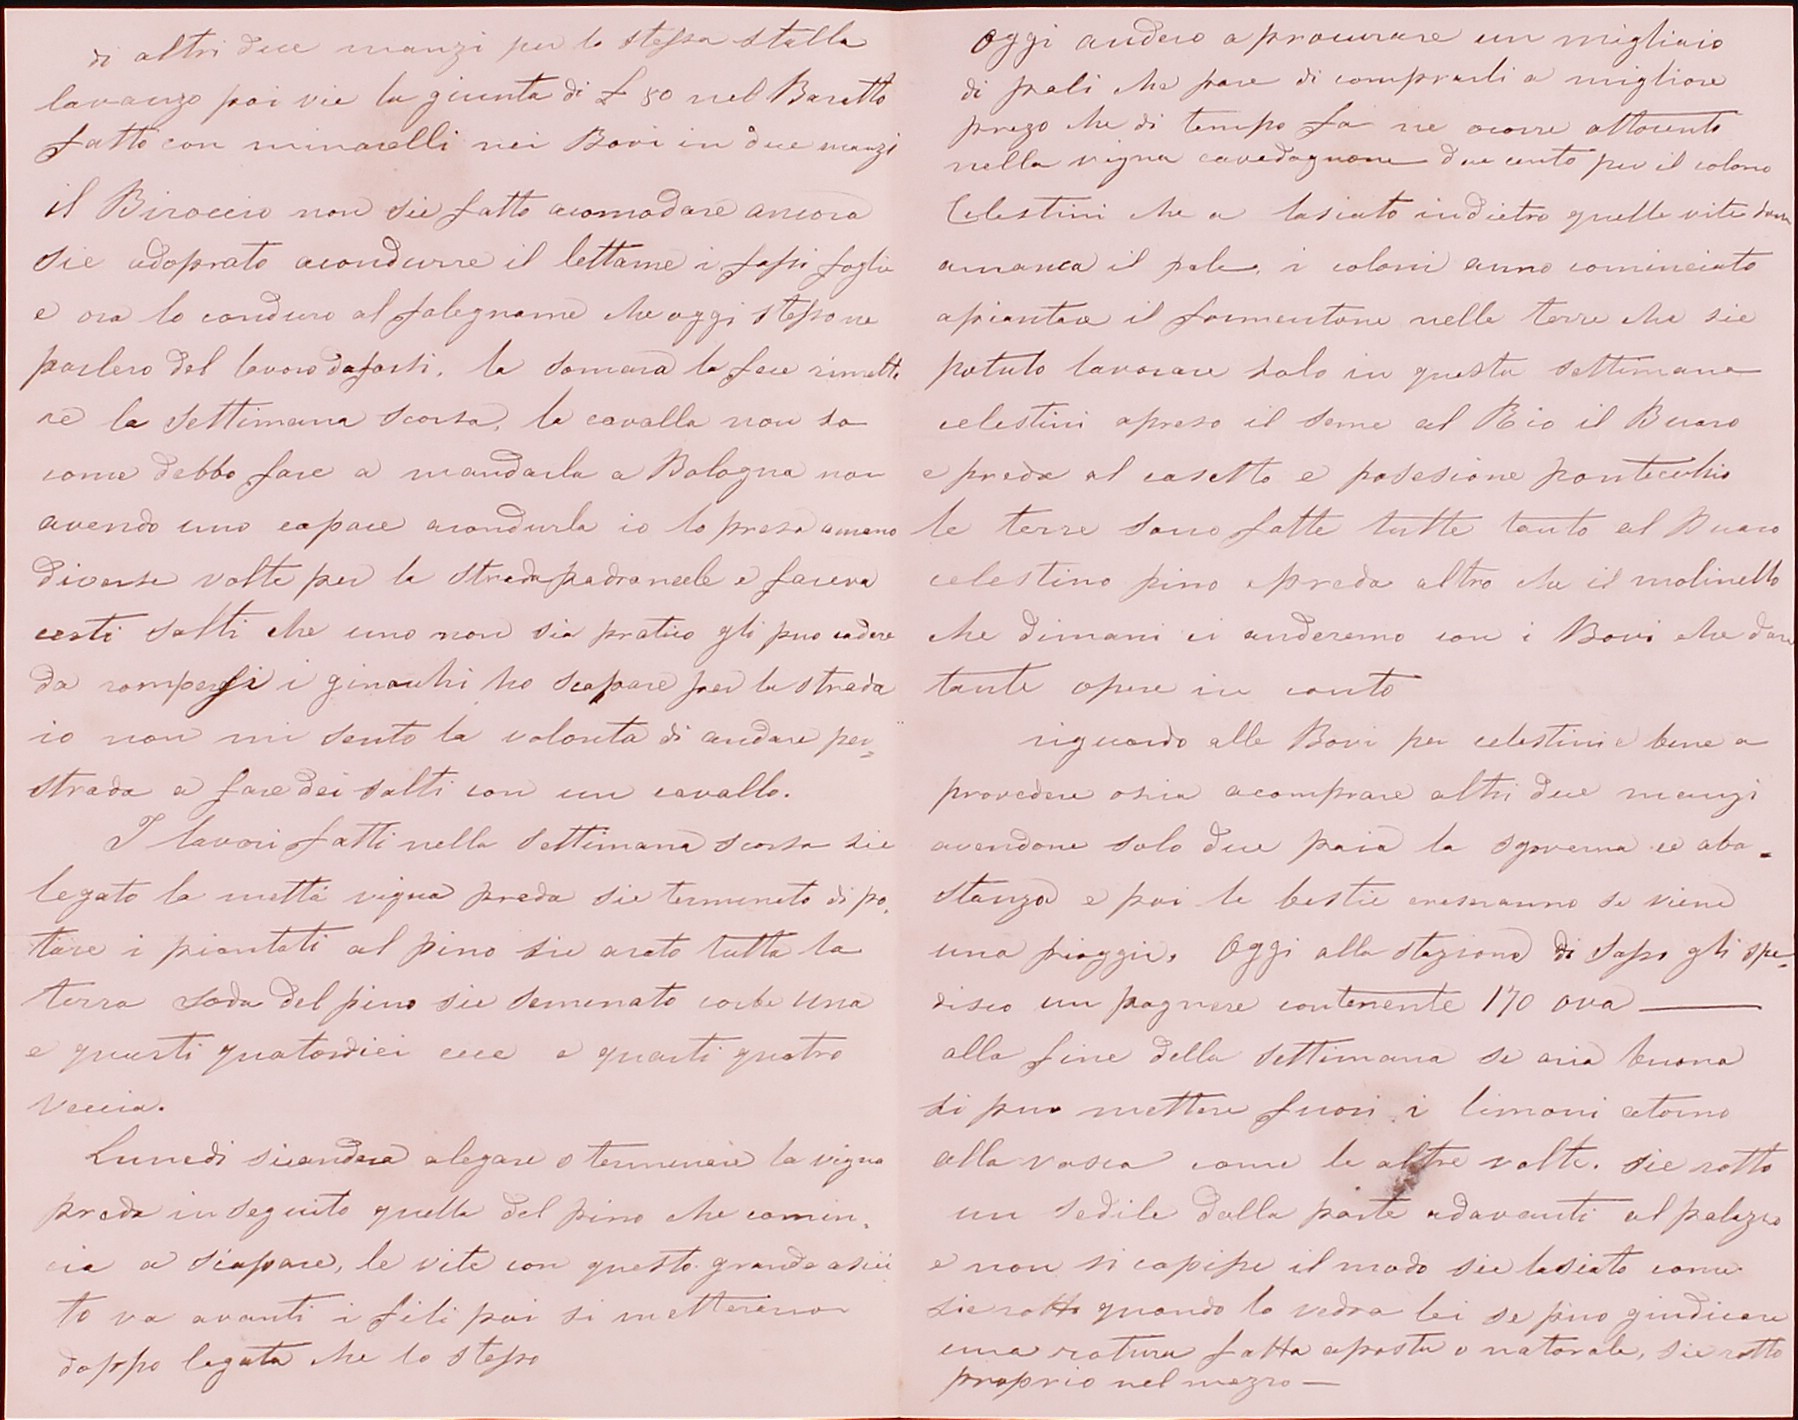 di altri due manzi per lo stessa stalla
lavanzo poi vie la giunta di £ 50 nel Baratto
fatto con minarelli nei Bovi in due manzi
il Biroccio non sie fatto acomodare ancora
sie adoprato acondurre il lettame i fassi foglia
e ora lo conduro al falegname che oggi stesso ne
parlero del lavoro dafarsi. la somara la fece rimette
re la settimana scorsa, la cavalla non so
come debbo fare a mandarla a Bologna non
avendo uno capace acondurla io lo presa amano
diverse volte per la strada padronale e faceva
certi salti che uno non sia pratico gli puo cadere
da rompersi i ginochi ho scapare per la strada
io non mi sento la volonta di andare per
strada a fare dei salti con un cavallo.
I lavori fatti nella settimana scorsa sie
legato la mettà vigna preda sie terminato di po,
tare i piantati al pino sie arato tutta la
terra soda del pino sie semenato corbe una
e quarti quatordici e quarti quatro
veccia.
Lunedi siandera alegare e terminare la vigna
preda in seguito quella del pino che comin,
cia a sciapare, le vite con questo grande asciu
to va avanti i fili poi si metterenno
doppo legata che lo stesso
Oggi andero a procurare un migliaio
di pali che pare di comprarli a migliore
prezo che di tempo fa ne ocorre attocento
nella vigna cavedagnone due cento per il colono
Celestini che a lasciato indietro quelle vite
amanca il palo, i coloni anno cominciato
apiantare il formentone nelle terre che sie
potuto lavorare solo in questa settimana
celestini apreso il seme al Rio il Buaro
e preda al casetto e posesione pontecchio
le terre sono fatte tutte tanto al Buaro
celestino pino epreda altro che il molinello
che dimani ci anderemo con i Bovi che dara
tante opere in conto
riguardo alle Bovi per celestini e bene a
provedere osia acomprare altri due manzi
avendone solo due paia la sgoverna ce aba-
stanza e poi le bestie cresceranno se viene
una pioggia. Oggi alla stazione di Sasso gli spe-
disco un pagnere contenente 170 ova
alla fine della settimana se aria buona
si puo mettere fuori i limoni atorno
alla vasca come le altre volte. sie rotto
un sedile dalla parte adavanti al palazzo
e non si capisse il modo sie lasciato come
sie rotto quando lo vedra lei se puo giudicare
una rotura fatta aposta o naturale, sie rotto
proprio nel mezzo